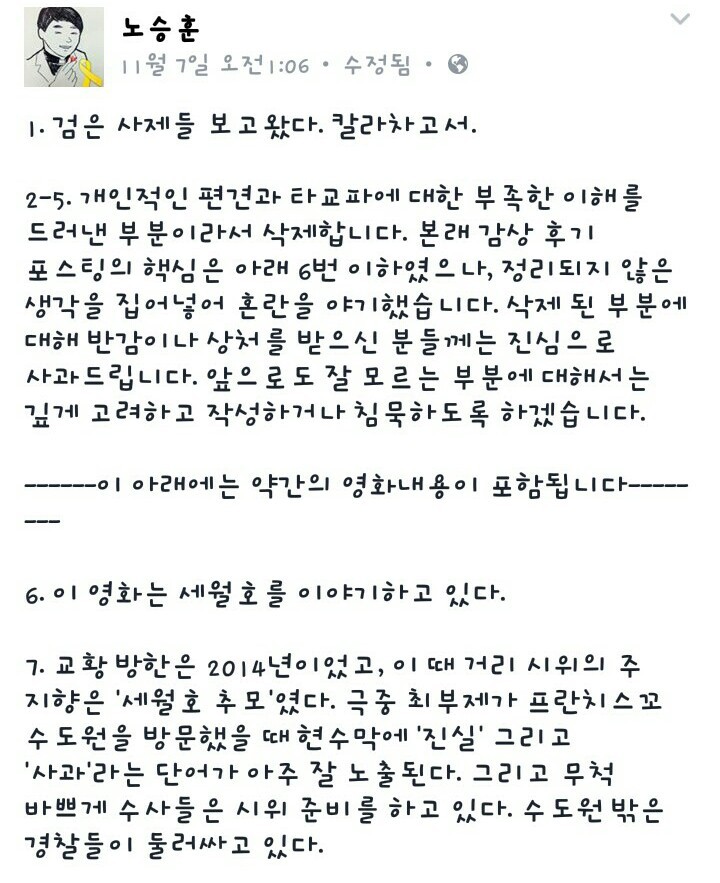 노승훈
11월 7일 오전1:06 • 수정됨 •
1. 검은 사제들 보고왔다. 칼라차고서.
2-5. 개인적인 편견과 타교파에 대한 부족한 이해를
드러낸 부분이라서 삭제합니다. 본래 감상 후기
포스팅의 핵심은 아래 6번 이하였으나, 정리되지 않은
생각을 집어넣어 혼란을 야기했습니다. 삭제 된 부분에
대해 반감이나 상처를 받으신 분들께는 진심으로
사과드립니다. 앞으로도 잘 모르는 부분에 대해서는
깊게 고려하고 작성하거나 침묵하도록 하겠습니다.
------이 아래에는 약간의 영화내용이 포함됩니다-----
---
6. 이 영화는 세월호를 이야기하고 있다.
7. 교황 방한은 2014년이었고, 이 때 거리 시위의 주
지향은 '세월호 추모'였다. 극중 최부제가 프란치스꼬
수도원을 방문했을 때 현수막에 '진실' 그리고
'사과'라는 단어가 아주 잘 노출된다. 그리고 무척
바쁘게 수사들은 시위 준비를 하고 있다. 수도원 밖은
경찰들이 둘러싸고 있다.